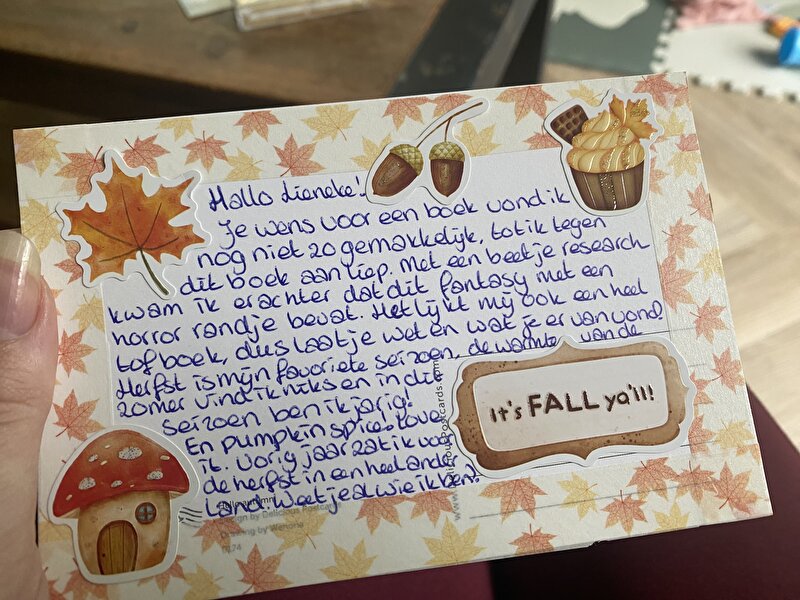 Hallo Lieneke!
Je wens voor een boek vond ik
nog niet zo gemakkelijk, tot ik tegen
dit boek aan liep. Met een beetje research
kwam ik er achter dat dit fantasy met een
horror randje bevat. Het lijkt mij ook een heel
tof boek, dus laat je weten wat je er van vond?
Herfst is mijn favoriete seizoen, de warmte van de
zomer vind ik niks en in dit
seizoen ben ik jarig!
En pumpkin spice, love
it. Vorig jaar zat ik voor
de herfst in een heel ander
land. Weet je al wie ik ben?
It's FALL ya'll!
Design by Delicious Postcards
Drawing by